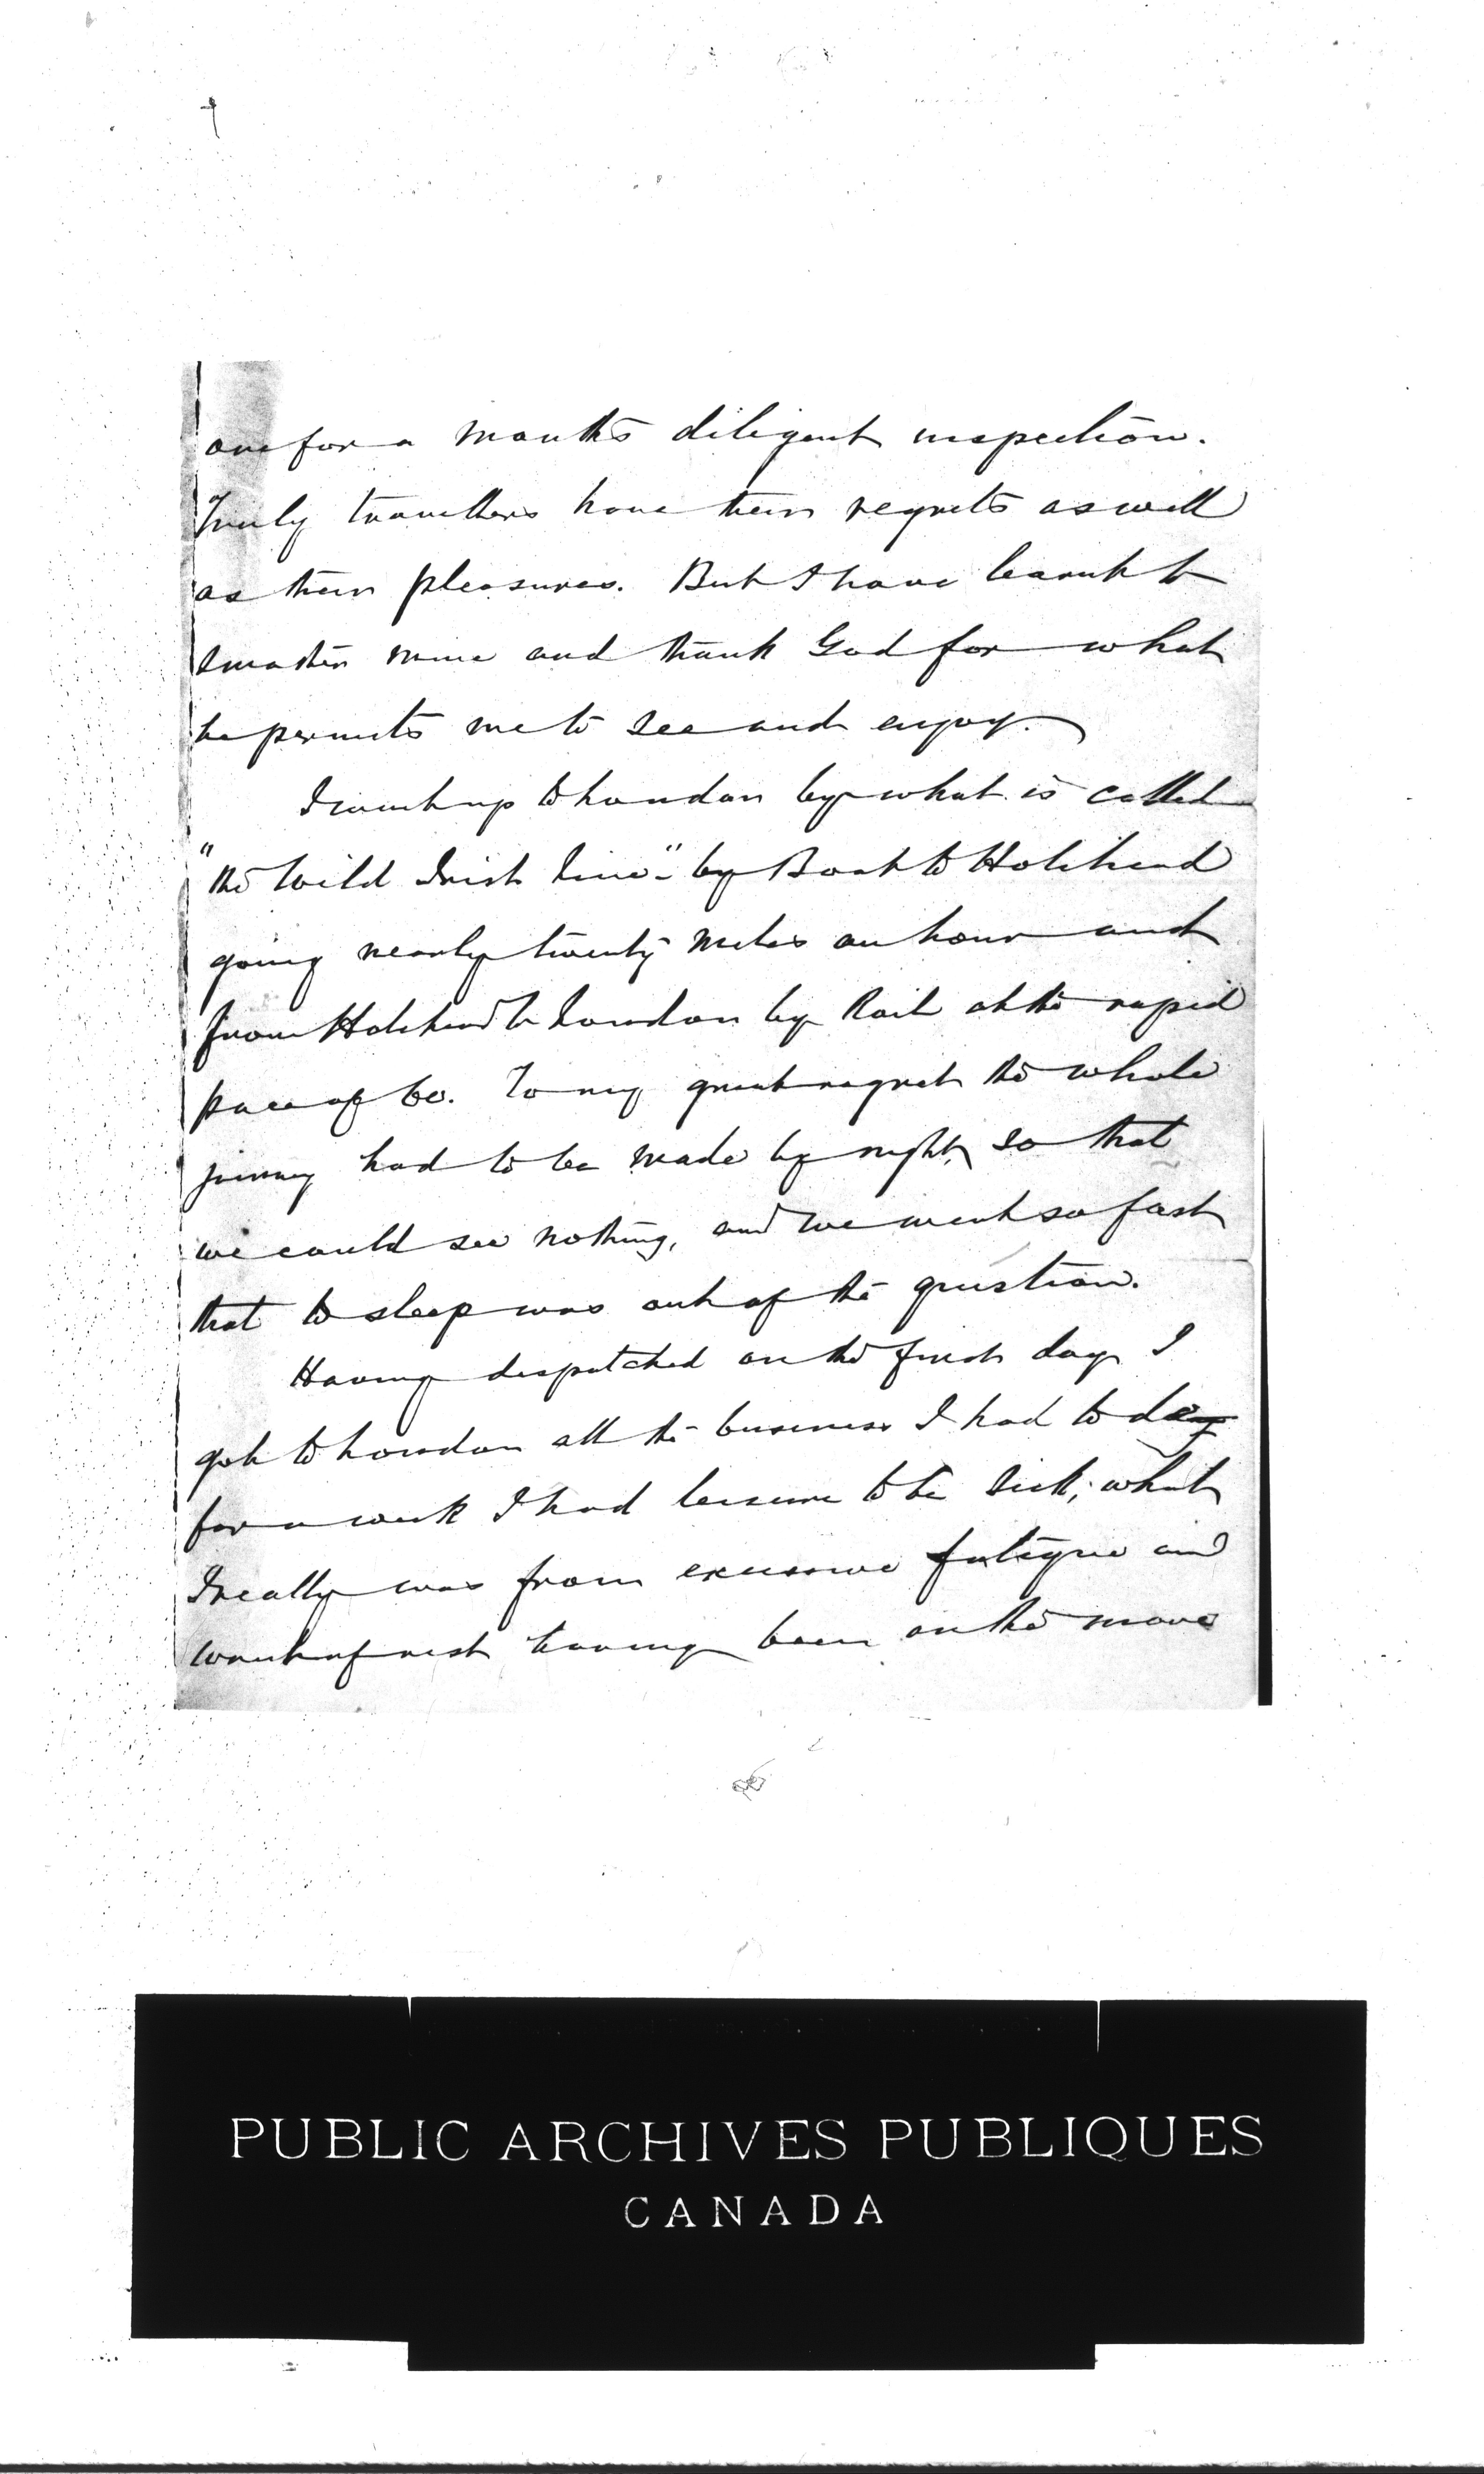 one for a month's diligent inspection.
Truly travellers have their regrets as well
as their pleasures. But I have learnt to
master mine and thank God for what
he permits me to see and enjoy.
I went up to London by what is called
"the Wild Irish line" by Boat to Holihead
going nearly twenty miles an hour and
from Holihead to London by Rail at the rapid
pace of 60. To my great regret the whole
journey had to be made by night, so that
we could see nothing, and we went so fast
that to sleep was out of the question.
Having despatched on the first day I
got to London all the business I had to do
for a week I had leisure to be sick; what
I really was from excessive fatigue and
want of rest having been on the move
PUBLIC ARCHIVES PUBLIQUES
CANADA